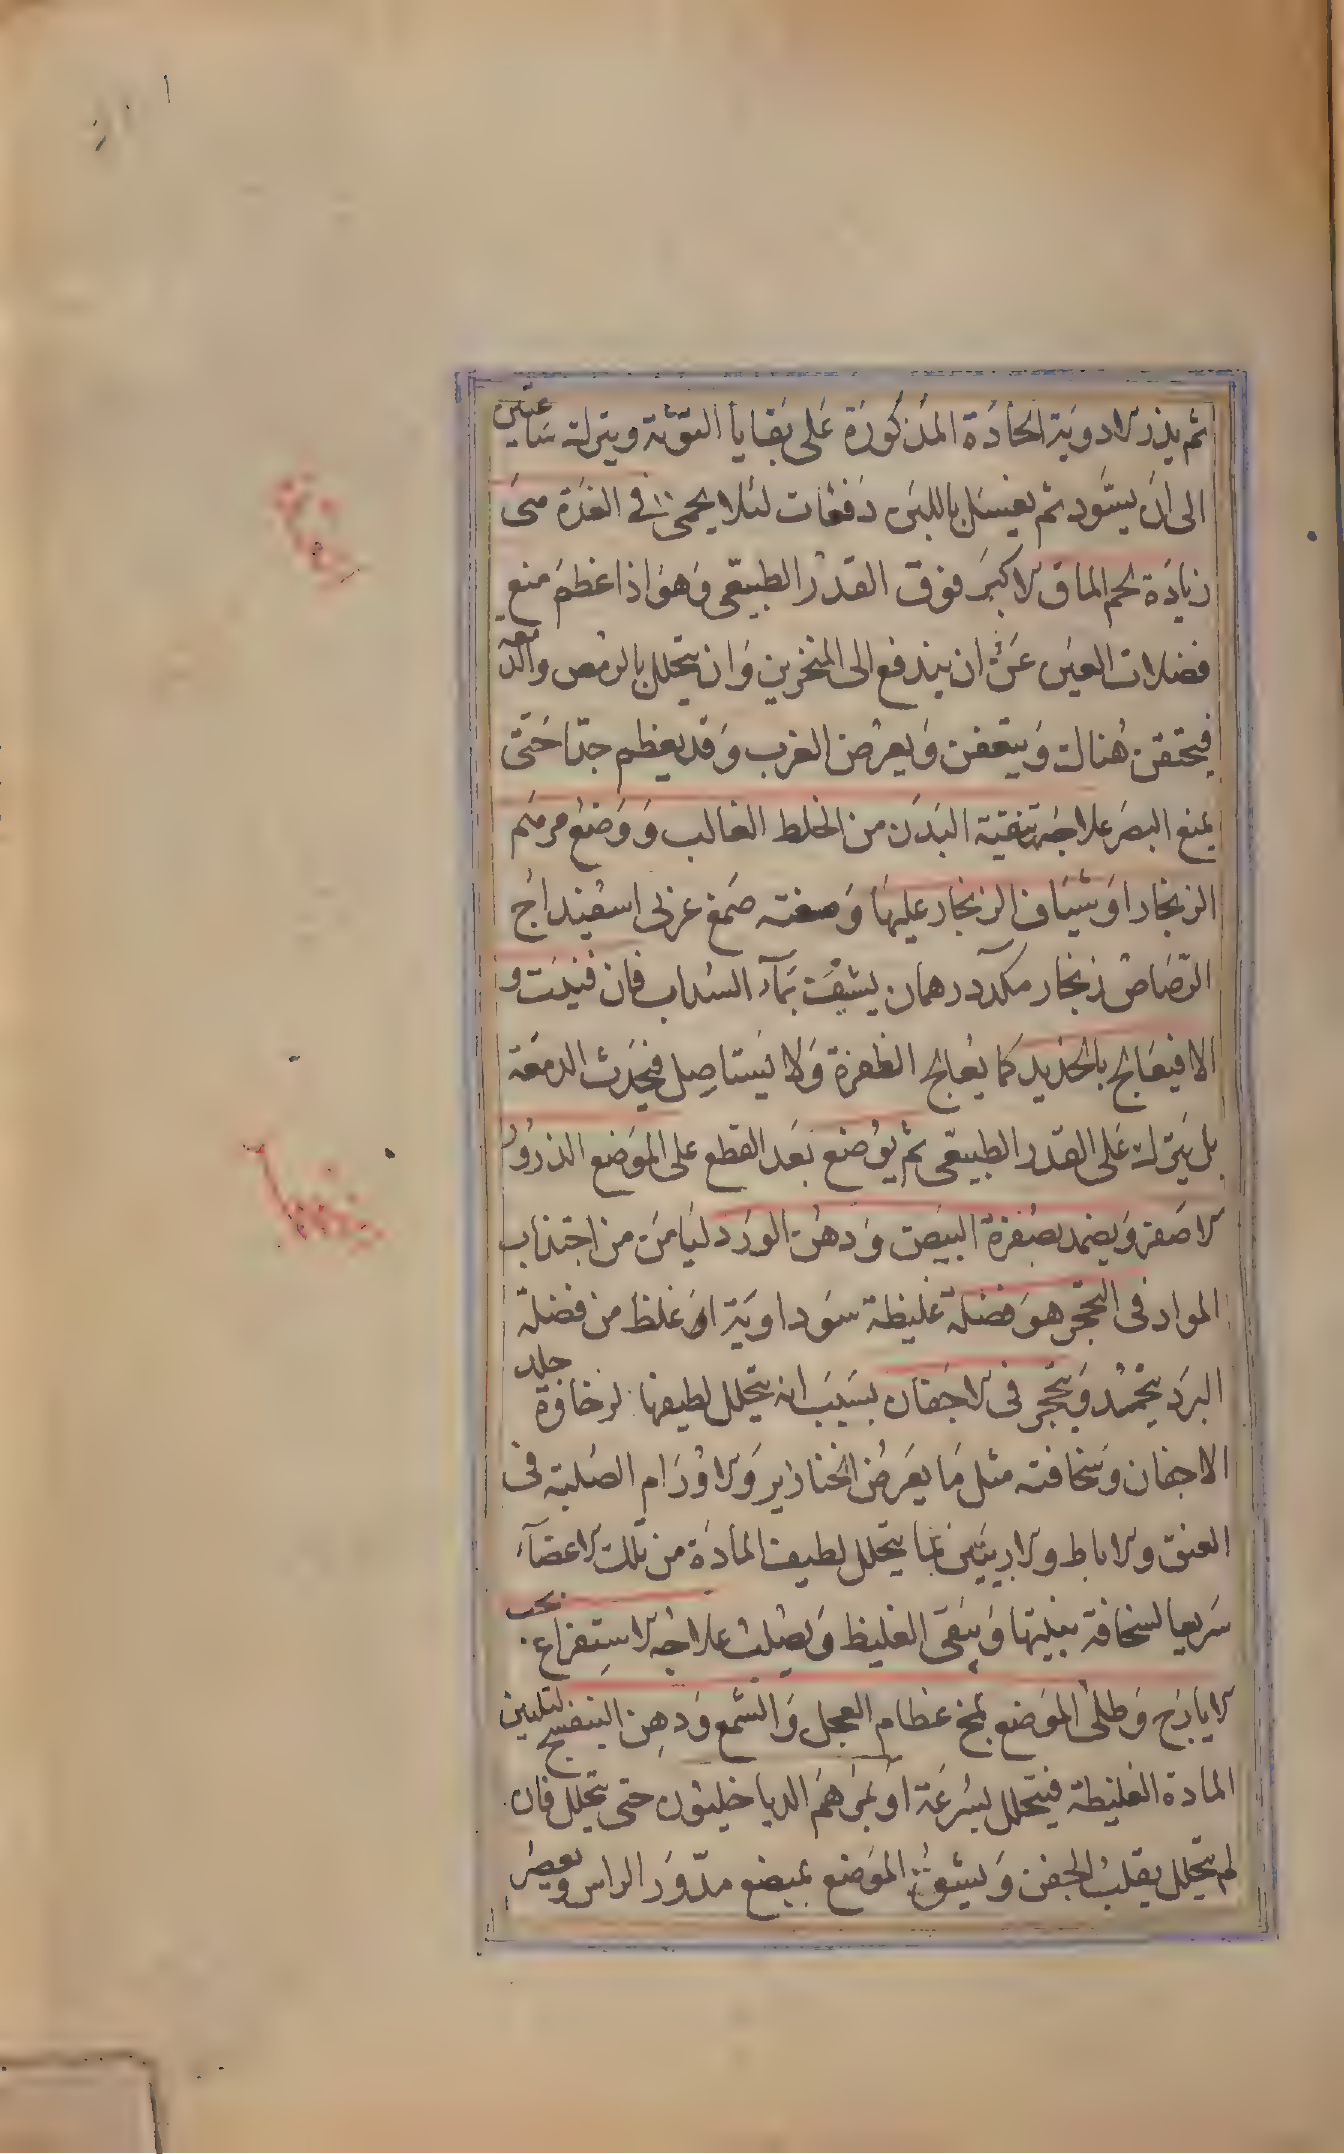 ثم يذر الادوية الحادة المذكورة على بقايا التوثة ويترك ساعتين
الى ان يسود ثم يغسل باللبن دفعات لئلا يحمى في الغدة هى
زيادة لحم الماق الاكبر فوق القدر الطبيعى وهو اذا عظم منع
فضلات العين عن ان يندفع الى المنخرين وان يتحلل بالرمص والدمعة
فيحتقن هناك ويتعفن ويعرض الغرب وقد يعظم جدا حتى
يمنع البصر علاجه تنقية البدن من الخلط الغالب ووضع مرهم
الزنجار او شياف الزنجار عليها وصفته صمغ عربى اسفيداج
الرصاص زنجار مكد درهمان يشيف بماء السداب فان فنيت و
الا فيعالج بالحديد كما يعالج الظفرة ولا يستاصل فيحدث الدمعة
بل يترك على القدر الطبيعى ثم يوضع بعد القطع على الموضع الذرور
الاصفر ويضمد بصفرة البيض ودهن الورد ليامن من اجتذاب
المواد فى التحجر هو فضلة غليظة سوداوية او غلظ من فضلة
البرد يتجمد ويتحجر فى الاجفان بسبب انه يتحلل لطيفها لرخاوة جلد
الاجفان وسخافته مثل ما يعرض الخنازير والاورام الصلبة فى
العنق والاباط والاربيتين لما يتحلل لطيف المادة من تلك الاعضاء
سريعا لسخافة بنيتها ويبقى الغليظ ويصلب علاجه الاستفراغ بحب
الايارج وطلى الموضع بمخ عظام العجل والشمع ودهن البنفسج لتليين
المادة الغليظة فيتحلل بسرعة او بمرهم الدياخليون حتى يتحلل فان
لم يتحلل يقلب الجفن ويشق الموضع بمبضع مدور الراس ويعصر